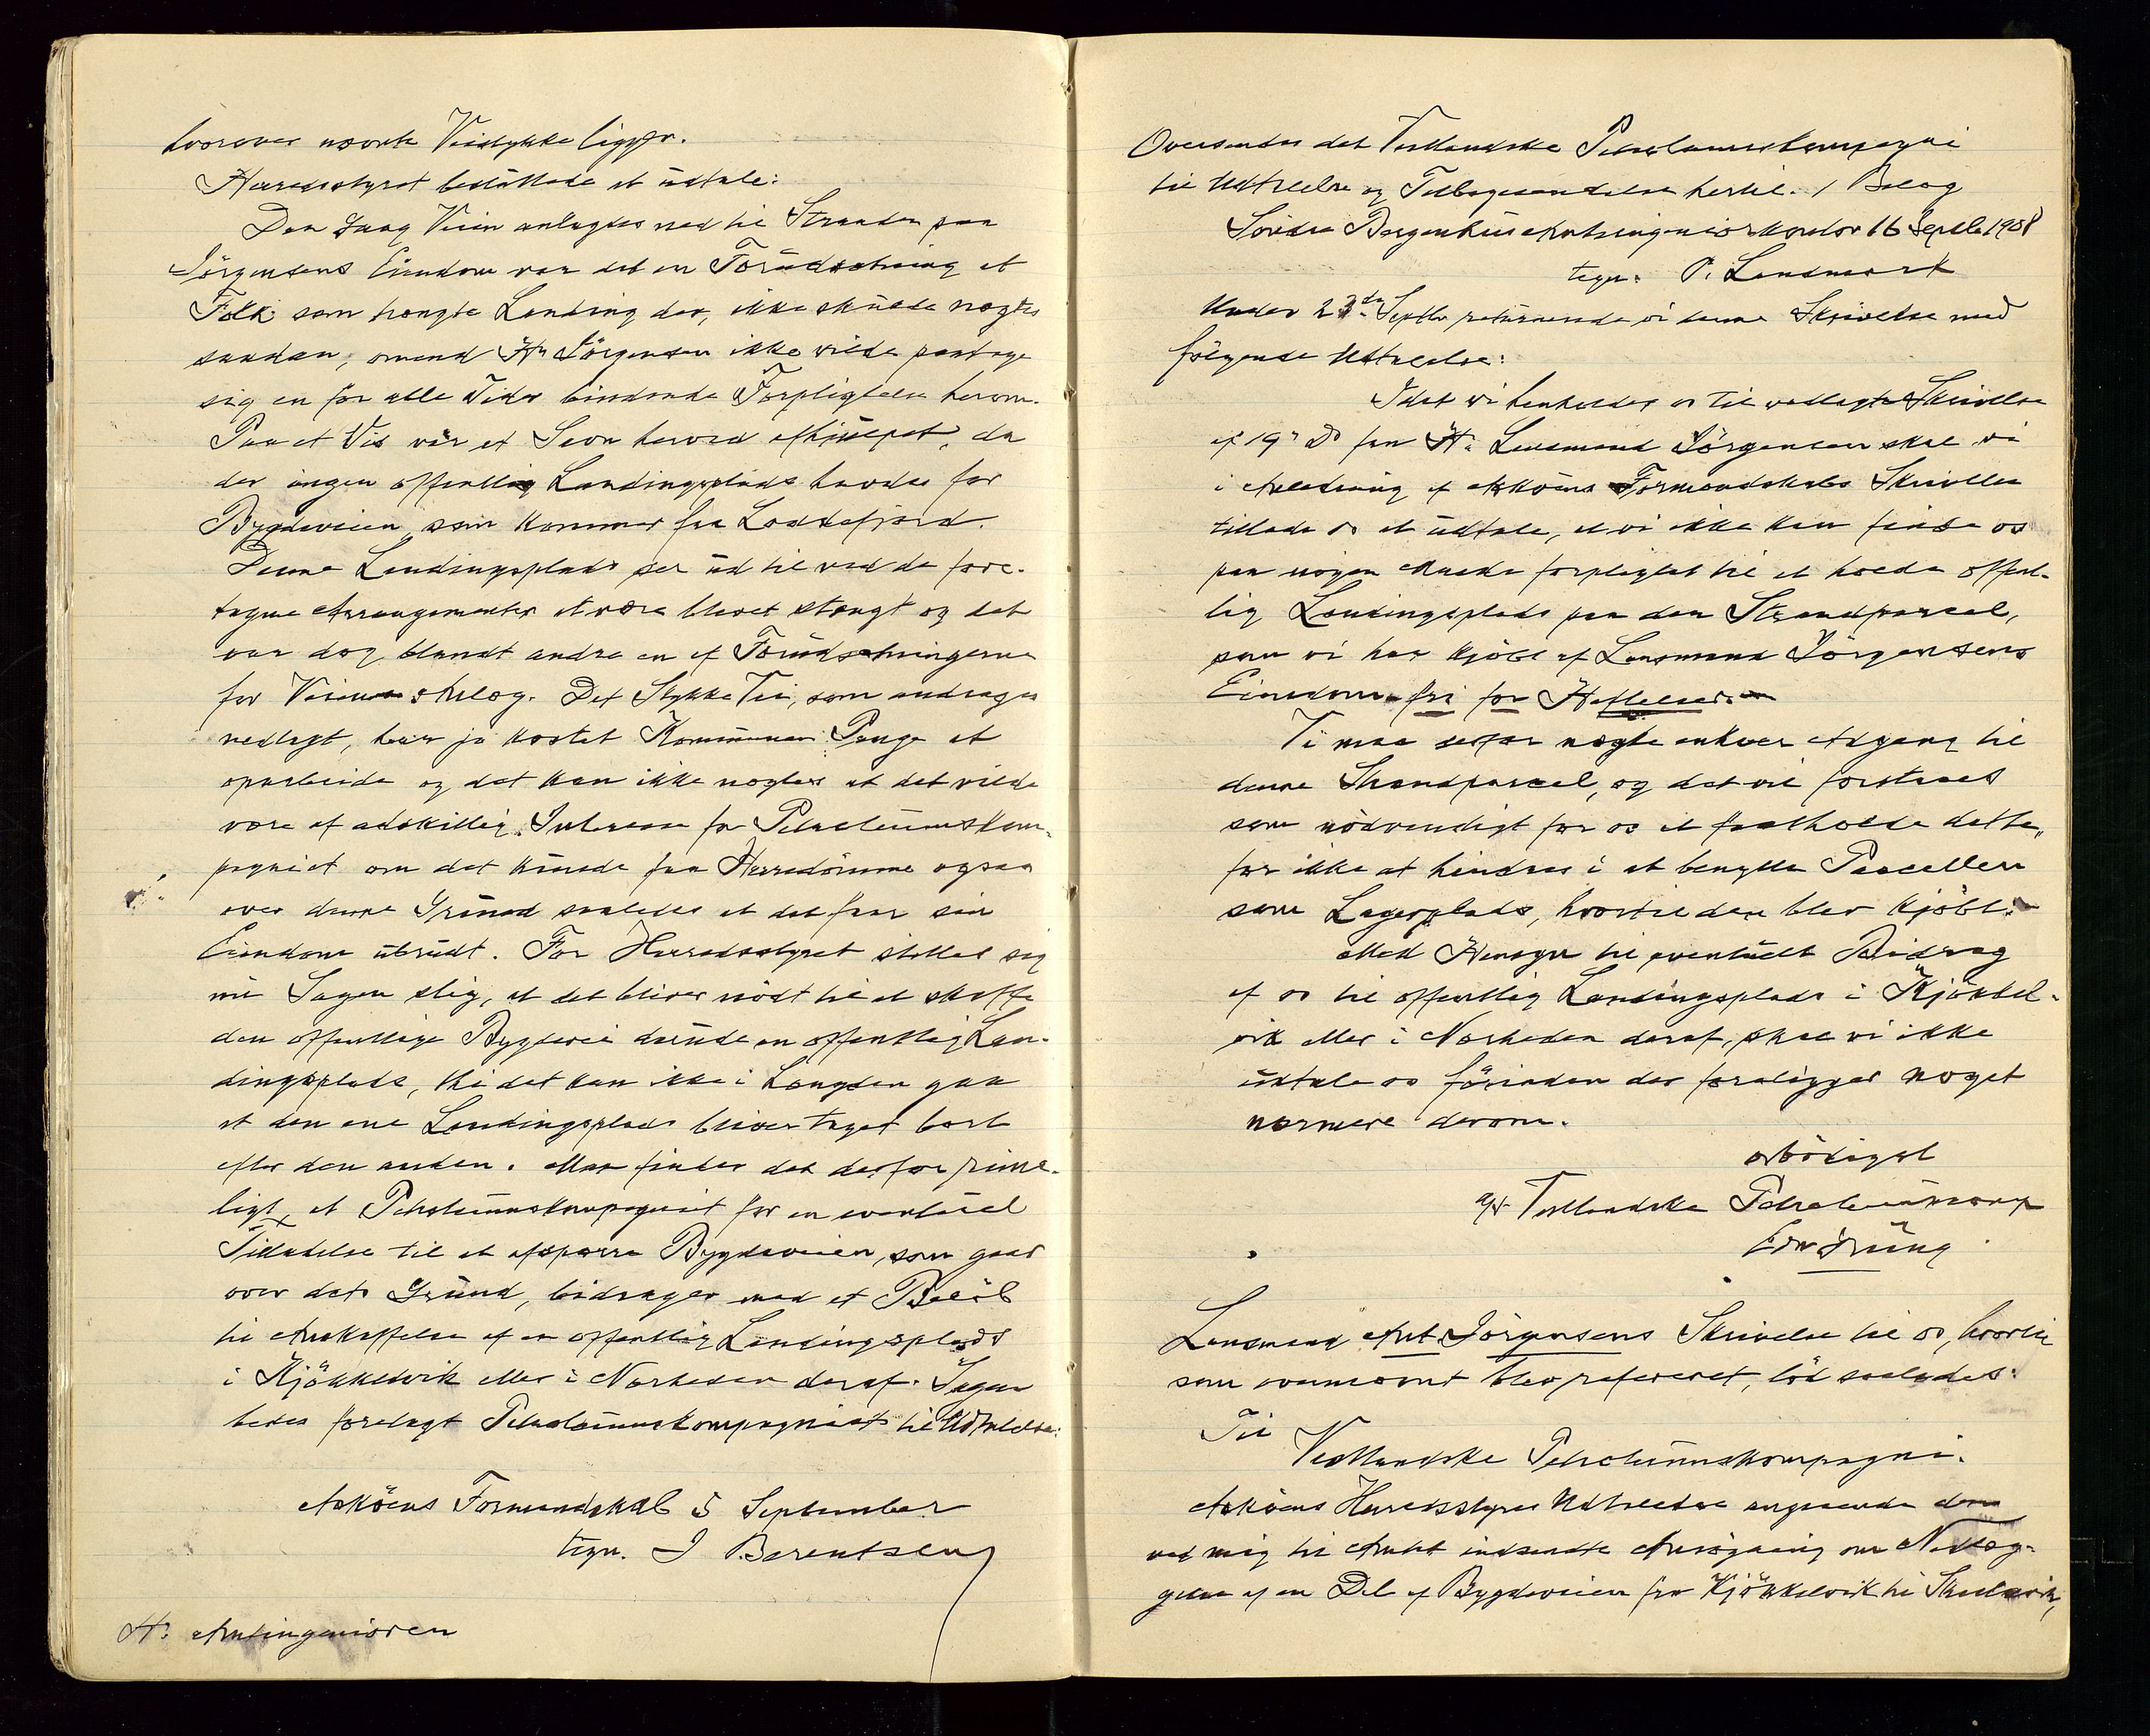 hvorover nævnte Veistykke ligger.
Herredsstyret besluttede at udtale:
Den Gang Veien anlagdes ned til Stranden paa
Jörgensens Eiendom var det en Forudsætning at
Folk som trængte Landing der, ikke skulde nægtes
saadan, omend Hr Jörgensen ikke vilde paatage
sig en for alle Tider bindende Forpligtelse herom.
Paa et Vis var et Savn herved afhjulpet, da
der ingen offentlig Landingsplads havdes for
Bygdeveien som kommer fra Loddefjord.
Denne Landingsplads ser ud til ved de fore-
tagne Arrangementer at være blevet stængt og det
var dog blandt andre en af Forudsætningerne
for Veiens Anlæg. Det Stykke Vei, som andrages
nedlagt, har jo kostet Kommunen Penge at
oparbeide og det kan ikke nægtes at det vilde
være af adskillig Interesse for Petroleumskom-
pagniet om det kunde faa Herredömme ogsaa
over denne Grund saaledes at det faar sin
Eiendom ubrudt. For Herredsstyret stiller sig
nu Sagen slig, at det bliver nödt til at skaffe
den offentlige Bygdevei derude en offentlig Lan-
dingsplads, thi det kan ikke i Længden gaa
at den ene Landingsplads bliver taget bort
efter den anden. Man finder det derfor rime-
ligt, at Petroleumskompagniet for en eventuel
Tilladelse til at afspærre Bygdeveien, som gaar
over dets Grund, bidrager med et Belöb
til Anskaffelse af en offentlig Landingsplads
i Kjökkelvik eller i Nærheden deraf. Sagen
bedes forelagt Petroleumskompagniet til Udtalelse.
Asköens Formandskab 5 September
tegn. J Berentsen
Hr Amtsingeniören
Oversendes det Vestlandske Petroleumskompagni
til Udtalelse og Tilbagesendelse hertil. 1 Bilag
Söndre Bergenhus Amtsingeniörkontor 16 Septbr 1908
tegn. P. Landmark
Under 23de Septbr returnerede vi denne Skrivelse med
fölgende Udtalelse:
Idet vi henholder os til vedlagte Skrivelse
af 19' ds fra Hr Lensmand Jörgensen skal vi
i Anledning af Asköens Formandskabs Skrivelse
tillade os at udtale, at vi ikke kan finde os
paa nogen Maade forpligtet til at holde offent-
lig Landingsplads paa den Strandparcel,
som vi har kjöbt af Lensmand Jörgensens
Eiendom fri for Heftelser.
Vi maa derfor nægte enhver Adgang til
denne Strandparcel, og det vil forstaaes
som nödvendigt for os at fastholde dette,
for ikke at hindres i at benytte Parcellen
som Lagerplads, hvortil den blev kjöbt.
Med Hensyn til eventuelt Bidrag
af os til offentlig Landingsplads i Kjökkel-
vik eller i Nærheden deraf, skal vi ikke
udtale os förinden der foreligger noget
nærmere derom.
Ærbödigst
Vestlandske Petroleumscomp
Edw Grung
Lensmand Ant. Jörgensens Skrivelse til os, hvortil
som ovennævnt blev refereret, löd saaledes:
Til
Vestlandske Petroleumskompagni.
Asköens Herredsstyres Udtalelse angaaende den
ved mig til Amtet indsendte Ansögning om Nedlæg-
gelse af en Del af Bygdeveien fra Kjökkelvik til